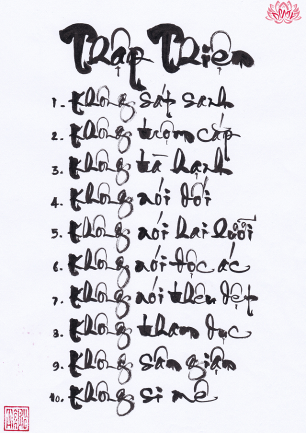 Thập Thiện
1. Không sát sanh
2. Không trộm cắp
3. Không tà hạnh
4. Không nói dối
5. Không nói hai lưỡi
6. Không nói độc ác
7. Không nói thêu dệt
8. Không tham dục
9. Không sân giận
10. Không si mê